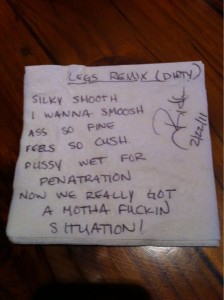 LEGS REMIX (DIRTY)
SILKY SMOOTH
I WANNA SMOOSH
ASS SO FINE
FEELS SO CUSH
PUSSY WET FOR
PENATRATION
NOW WE REALLY GOT
A MOTHA FUCKIN
SITUATION!
2/22/11